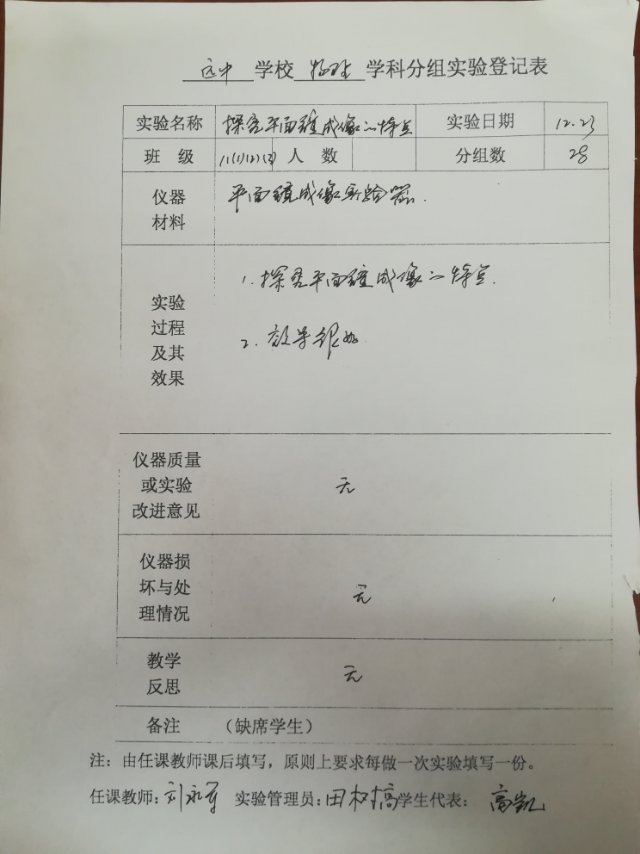 远中 学校 物理 学科分组实验登记表
实验名称 探究平面镜成像的特点 实验日期 12.23
班 级 11(1)(2)(3) 人 数 分组数 28
仪器 平面镜成像实验器.
材料
1. 探究平面镜成像的特点.
2. 效果很好
实验
过程
及其
效果
仪器质量
或实验 无
改进意见
仪器损
坏与处 无
理情况
教学 无
反思
备注 (缺席学生)
注：由任课教师课后填写，原则上要求每做一次实验填写一份。
任课教师：刘永军 实验管理员：田 学生代表： 高凯